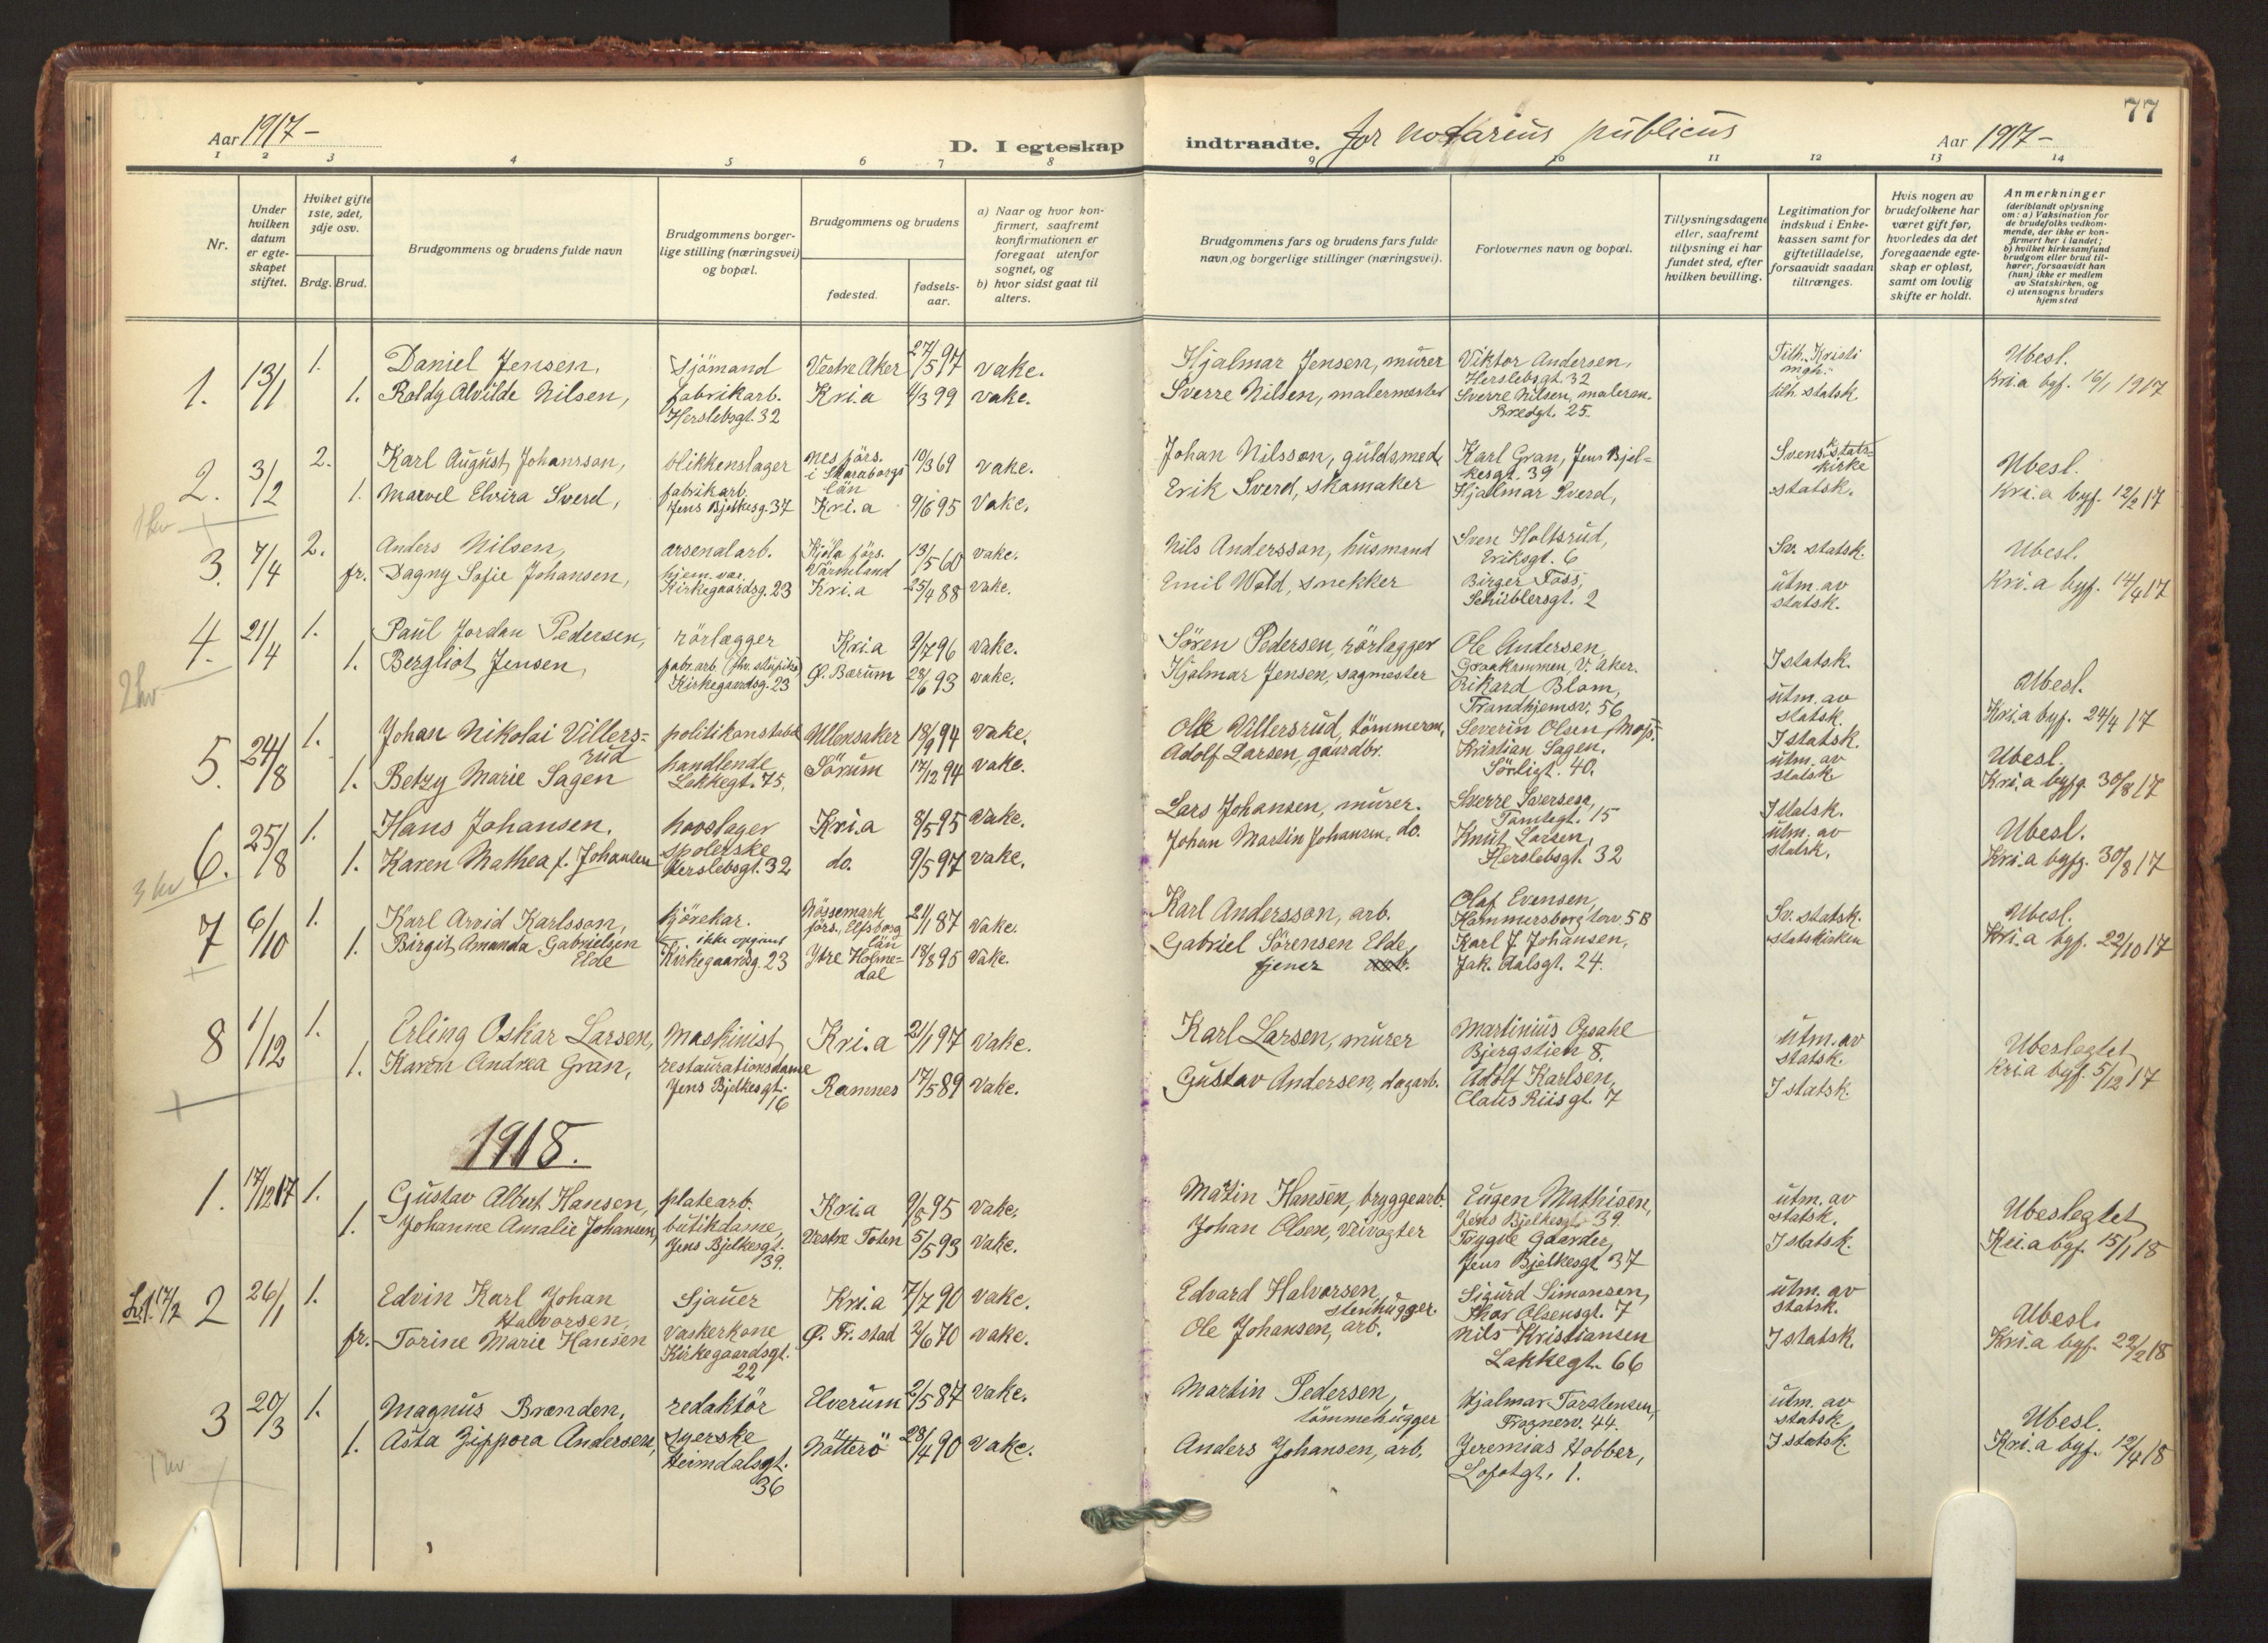 77
Aar 1917 –
D. I egteskap
indtraadte. for notarius publicus
Aar 1917 –
1 2 3 4 5 6 7 8 9 10 11 12 13 14
Nr.
Under hvilken datum er egteskapet stiftet.
Hvilket gifte 1ste, 2det, 3dje osv.
Brdg. Brud.
Brudgommens og brudens fulde navn
Brudgommens borgerlige stilling (næringsvei) og bopæl.
Brudgommens og brudens
fødested.
fødselsaar.
a) Naar og hvor konfirmert, saafremt konfirmationen er foregaat utenfor sognet, og
b) hvor sidst gaat til alters.
Brudgommens fars og brudens fars fulde navn og borgerlige stillinger (næringsvei).
Forlovernes navn og bopæl.
Tillysningsdagene eller, saafremt tillysning ei har fundet sted, efter hvilken bevilling.
Legitimation for indskud i Enkekassen samt for giftetilladelse, forsaavidt saadan tiltrænges.
Hvis nogen av brudefolkene har været gift før, hvorledes da det foregaaende egteskap er opløst, samt om lovlig skifte er holdt.
Anmerkninger
(deriblandt oplysning om: a) Vaksination for de brudefolks vedkommende, der ikke er konfirmert her i landet; b) hvilket kirkesamfund brudgom eller brud tilhører, forsaavidt han (hun) ikke er medlem av Statskirken, og c) utensogns bruders hjemsted
1. 13/1 1. Daniel Jensen, sjömand Vestre Aker 27/5 97 vake. Hjalmar Jensen, murer Viktor Andersen, Herslebsgt. 32 Tilh. Kristi mgh. Ubesl.
1. Roldg Alvilde Nilsen, fabrikarb. Herslebsgt. 32 Kri.a 4/3 99 vake. Sverre Nilsen, malermester Sverre Nilsen, malerm. Bredgt. 25. tilh. statsk. Kri.a byf. 16/1 1917
2. 3/2 2. Karl August Johansson, blikkenslager Nesförs. i Skaraborgs län 10/3 69 vake. Johan Nilsson, guldsmed Karl Gran, Jens Bjelkesgt. 39 Svensk statskirke Ubesl.
1. Marvel Elvira Sverd, fabrikarb. Jens Bjelkesg. 37 Kri.a 9/6 95 vake. Erik Sverd, skomaker Hjalmar Sverd, statsk. Kri.a byf. 12/2 17
3. 7/4 2. Anders Nilsen, arsenalarb. Kjöla förs. Värmland 13/5 60 vake. Nils Andersson, husmand Sven Holtsrud, Eriksgt. 6 Sv. statsk. Ubesl.
fr. Dagny Sofie Johansen, hjem.vær. Kirkegaardsg. 23 Kri.a 25/4 88 vake. Emil Wold, snekker Birger Foss, Schüblersgt. 2 utm. av statsk. Kri.a byf. 14/4 17
4. 21/4 1. Paul Jordan Pedersen, rörlægger Kri.a 9/7 96 vake. Sören Pedersen, rörlægger Ole Andersen, Graakammen, V. Aker. I statsk. Ubesl.
1. Bergliot Jensen, Kirkegaardsg. 23 Ø. Bærum 28/6 93 vake. Hjalmar Jensen, sagmester Rikard Blom, Trondhjemsv. 56 utm. av statsk. Kri.a byf. 24/4 17
5. 24/8 1. Johan Nikolai Villersrud politikonstabel Ullensaker 18/9 94 vake. Ole Villersrud, tömmerm. Severin Olsen, Moss. I statsk. Ubesl.
1. Betzy Marie Sagen handlende Lakkegt. 75. Sörum 17/12 94 vake. Adolf Larsen, gaardbr. Kristian Sagen, Sörligt. 40. utm. av statsk. Kri.a byfg. 30/8 17
6. 25/8 1. Hans Johansen. hovslager Kri.a 8/5 95 vake. Lars Johansen, murer. Sverre Sverssen, Tomtegt. 15 I statsk. Ubesl.
1. Karen Mathea f. Johansen spolerske Herslebsgt. 32 do. 9/5 97 vake. Johan Martin Johansen, do. Knut Larsen, Herslebsgt. 32 utm. av statsk. Kri.a byfg. 30/8 17
7 6/10 1. Karl Arvid Karlsson, kjörekar. Nössemark förs., Elfsborg län 21/1 87 vake. Karl Andersson, arb. Olaf Evensen, Hammersborg torv 5B Sv. statsk. Ubesl.
1. Birgit Amanda Gabrielsen Elde ikke opgivet Kirkegaardsg. 23 Ytre Holmedal 18/8 95 vake. Gabriel Sörensen Elde, fjener Karl J. Johansen, Jak. Aalsgt. 24. statskirken Kri.a byf. 22/10 17
8 1/12 1. Erling Oskar Larsen, Maskinist Kri.a 21/1 97 vake. Karl Larsen, murer Martinius Opsahl Bjergstien 8. utm. av statsk. Ubeslegtet
1. Karen Andrea Gran, restaurationsdame Jens Bjelkesgt. 16 Ramnes 17/5 89 vake. Gustav Andersen, dagarb. Adolf Karlsen, Claus Riisgt. 7 I statsk. Kria byf. 5/12 17
1918.
1. 17/12 17 1. Gustav Albert Hansen, platearb. Kri.a 9/8 95 vake. Martin Hansen, bryggearb. Eugen Mathisen, Jens Bjelkesgt. 39. utm. av statsk. Ubeslegtet
1. Johanne Amalie Johansen, butikdame, Jens Bjelkesgt. 39. Vestre Toten 5/5 93 vake. Johan Olsen, veivogter Trygve Gaarder, Jens Bjelkesgt. 37 I statsk. Kri.a byf. 15/1 18
17/2 2 26/1 1. Edvin Karl Johan Halvorsen, Sjauer Kri.a 7/7 90 vake. Edvard Halvorsen, stenhugger. Sigurd Simonsen, Thor Olsensgt. 7 utm. av statsk. Ubesl.
fr. Torine Marie Hansen Vaskerkone Kirkegaardsgt. 22 Ø. Fr.stad 2/6 70 vake. Ole Johansen, arb. Nils Kristiansen Lakkegt. 66 I statsk. Kri.a byf. 22/2 18
3 20/3 1. Magnus Brænden, redaktör Elverum 2/5 87 vake. Martin Pedersen, tömmehugger Hjalmar Torstensen, Frognerv. 44. utm. av statsk. Ubesl.
1. Asta Zippora Andersen, syerske Heimdalsgt. 36 Nötterö 28/4 90 vake. Anders Johansen, arb. Jeremias Hobber, Lofotgt. 1. I statsk. Kri.a byf. 12/4 18